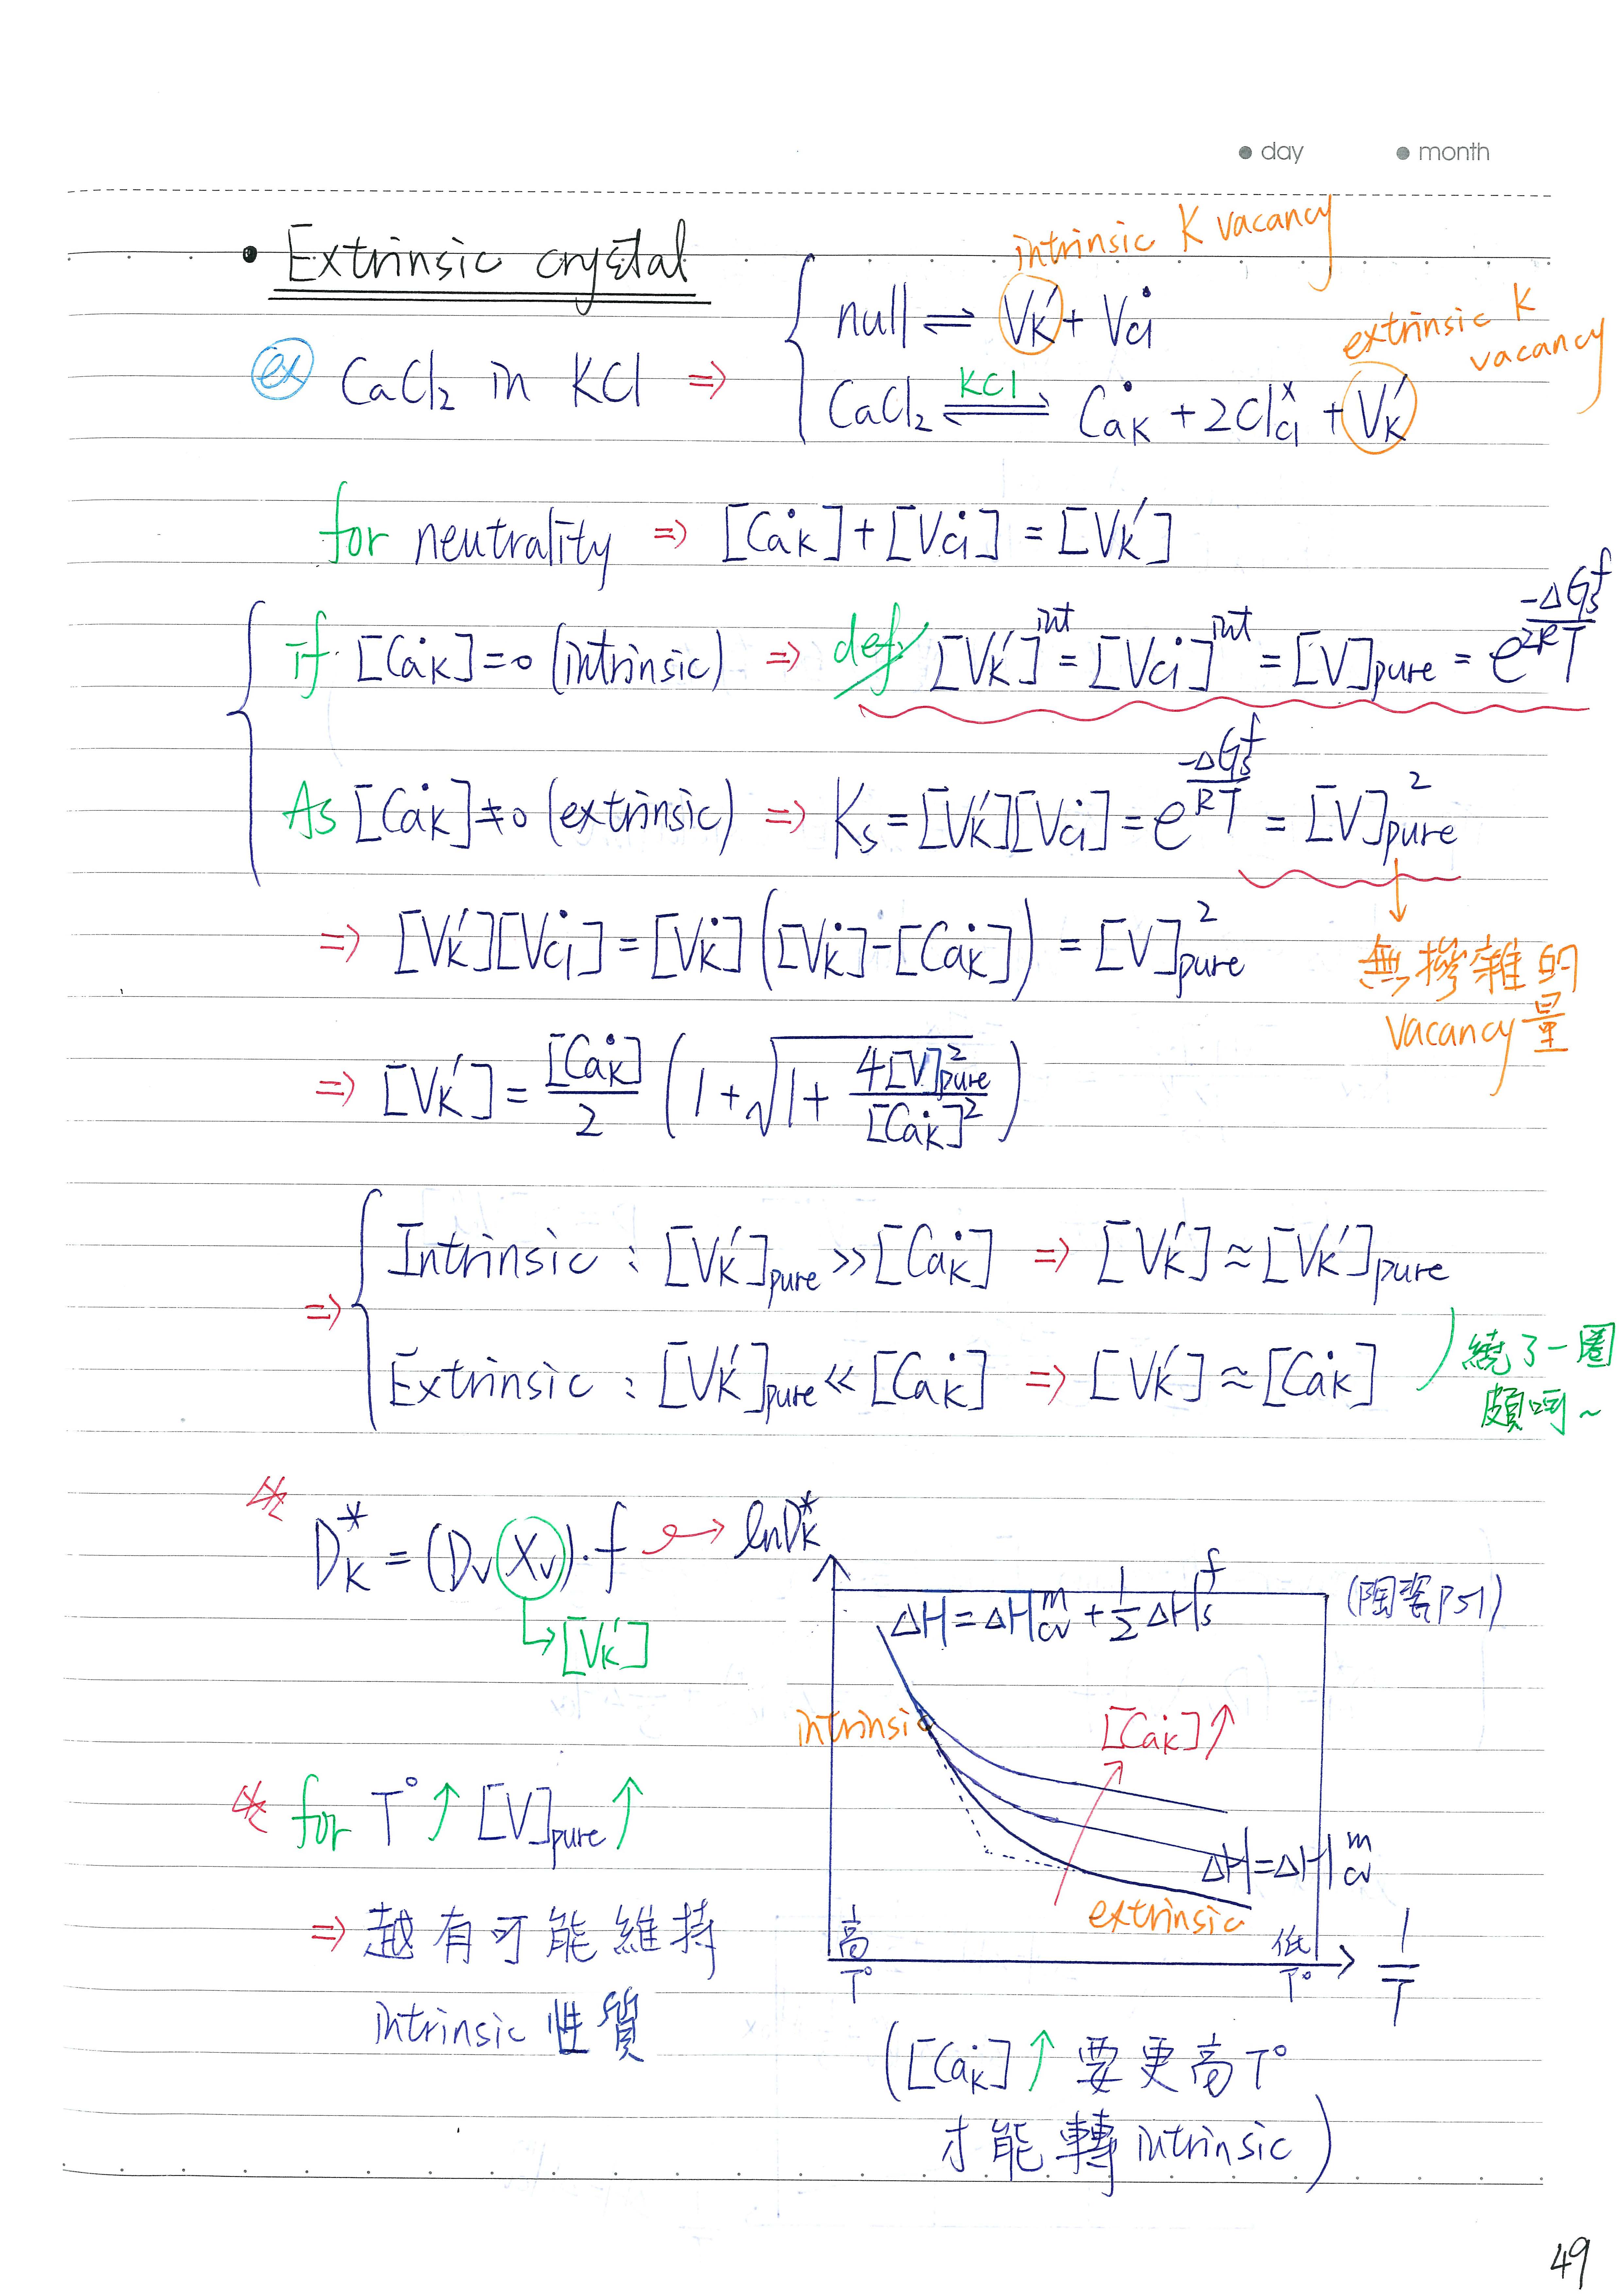 ● day ● month
• Extrinsic crystal
intrinsic K vacancy
null ⇌ V_K' + V_Cl^•
extrinsic K vacancy
ex CaCl₂ in KCl ⇒
CaCl₂ ⇌(KCl) Ca_K^• + 2Cl_Cl^x + V_K'
for neutrality ⇒ [Ca_K^•] + [V_Cl^•] = [V_K']
if [Ca_K^•] = 0 (intrinsic) ⇒ def [V_K']^int = [V_Cl^•]^int = [V]_pure = e^(-ΔG_s^f / 2RT)
As [Ca_K^•] ≠ 0 (extrinsic) ⇒ K_s = [V_K'][V_Cl^•] = e^(-ΔG_s^f / RT) = [V]_pure^2
⇒ [V_K'][V_Cl^•] = [V_K^•]([V_K^•] - [Ca_K^•]) = [V]_pure^2
無摻雜的
vacancy量
⇒ [V_K'] = [Ca_K^•]/2 (1 + √(1 + 4[V]_pure^2 / [Ca_K^•]^2))
⇒ Intrinsic : [V_K']_pure >> [Ca_K^•] ⇒ [V_K'] ≈ [V_K']_pure
Extrinsic : [V_K']_pure << [Ca_K^•] ⇒ [V_K'] ≈ [Ca_K^•]
繞了一圈
D_K^* = (D_v X_v)·f → lnD_K^*
→ [V_K']
ΔH = ΔH_cv^m + 1/2 ΔH_s^f
(陶瓷P51)
intrinsic
[Ca_K^•]↑
ΔH = ΔH_cv^m
extrinsic
高T°
低T°
1/T
for T°↑ [V]_pure↑
⇒ 越有可能維持
intrinsic 性質
([Ca_K^•]↑ 要更高T°
才能轉intrinsic)
49